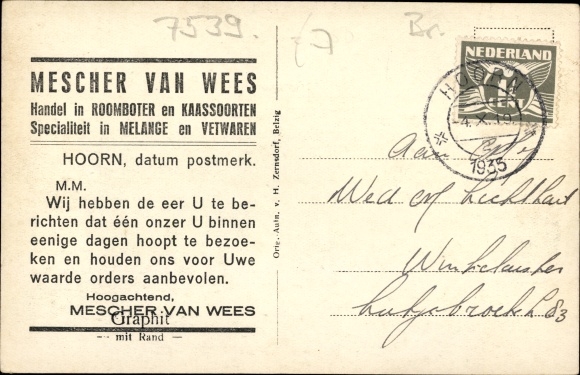 7539.
Br.
MESCHER VAN WEES
Handel in ROOMBOTER en KAASSOORTEN
Specialiteit in MELANGE en VETWAREN
HOORN, datum postmerk.
M.M.
Wij hebben de eer U te be-
richten dat één onzer U binnen
eenige dagen hoopt te bezoe-
ken en houden ons voor Uwe
waarde orders aanbevolen.
Hoogachtend,
MESCHER VAN WEES
Graphit
— mit Rand —
Orig. Autn. v. H. Zernsdorf, Belzig
NEDERLAND
HOORN
1935
Aan
Wed
Winkelierster
83